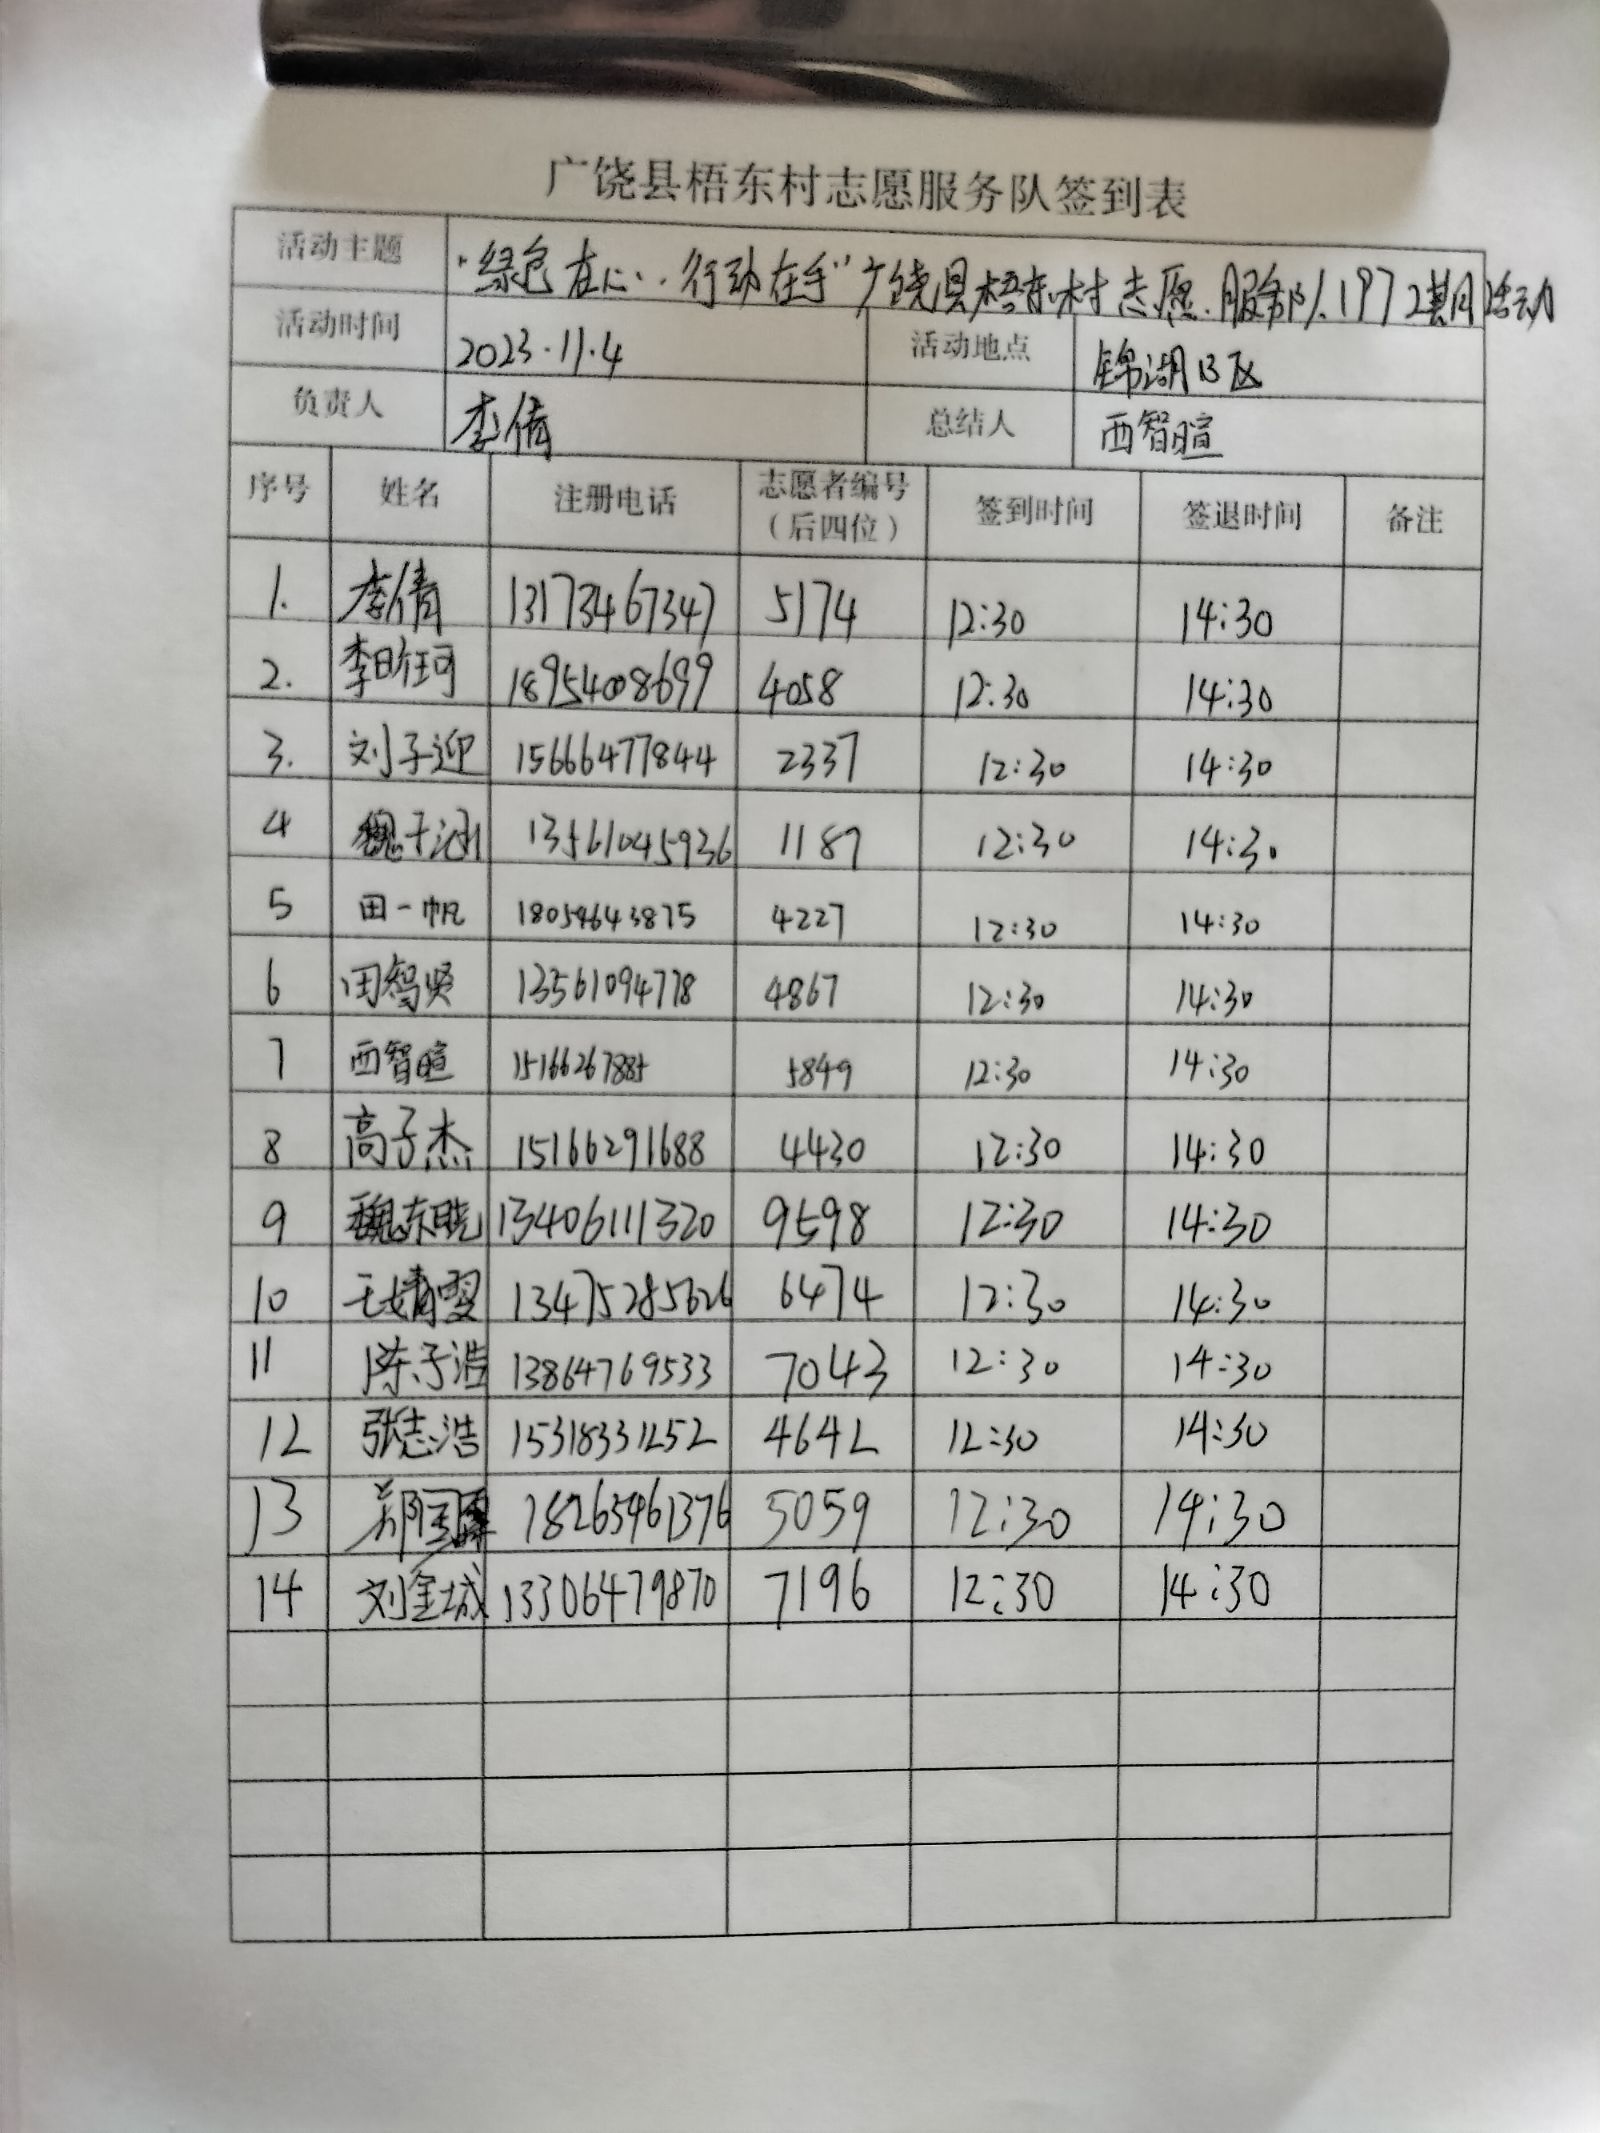 广饶县梧东村志愿服务队签到表
活动主题 "绿色在心、行动在手"广饶县梧东村志愿服务队197期活动
活动时间 2023.11.4 活动地点 锦湖B区
负责人 李倩 总结人 西智暄
序号 姓名 注册电话 志愿者编号（后四位） 签到时间 签退时间 备注
1. 李倩 13173467347 5174 12:30 14:30
2. 李昕珂 18954008699 4058 12:30 14:30
3. 刘子迎 15666477844 2337 12:30 14:30
4 魏子涵 13561045936 1187 12:30 14:30
5 田一帆 18054643875 4227 12:30 14:30
6 田智贤 13561094778 4867 12:30 14:30
7 西智暄 15166267885 5849 12:30 14:30
8 高子杰 15166291688 4430 12:30 14:30
9 魏东晓 13406111320 9598 12:30 14:30
10 王婧雯 13475285626 6474 12:30 14:30
11 陈子浩 13864769533 7043 12:30 14:30
12 张志浩 15318331252 4642 12:30 14:30
13 郑国 18265461376 5059 12:30 14:30
14 刘金城 13306479870 7196 12:30 14:30